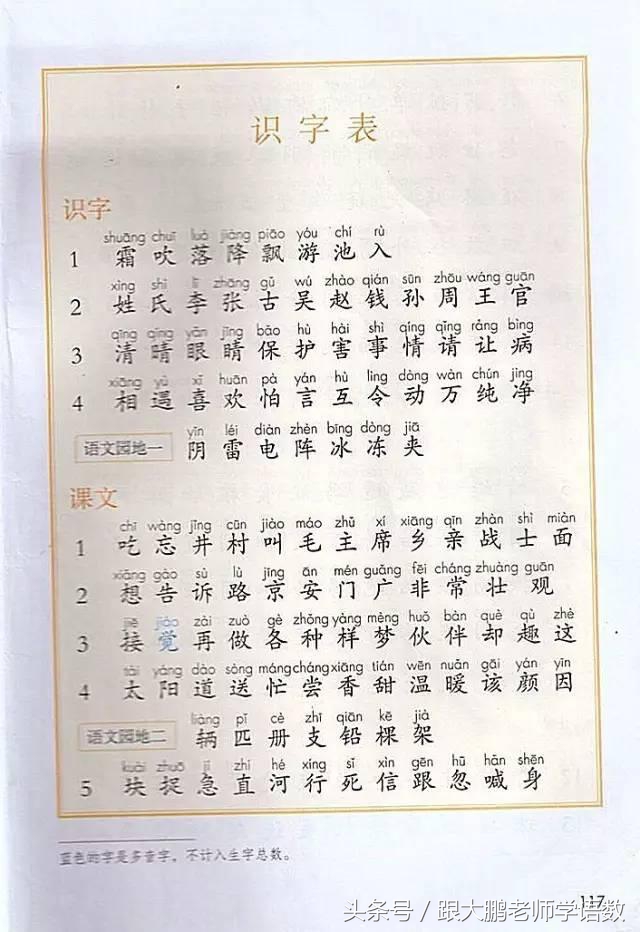 识字表
识字
shuāng chuī luò jiàng piāo yóu chí rù
1 霜 吹 落 降 飘 游 池 入
xìng shì lǐ zhāng gǔ wú zhào qián sūn zhōu wáng guān
2 姓 氏 李 张 古 吴 赵 钱 孙 周 王 官
qīng qíng yǎn jīng bǎo hù hài shì qíng qǐng ràng bìng
3 清 晴 眼 睛 保 护 害 事 情 请 让 病
xiāng yù xǐ huān pà yán hù lìng dòng wàn chún jìng
4 相 遇 喜 欢 怕 言 互 令 动 万 纯 净
yīn léi diàn zhèn bīng dòng jiā
语文园地一 阴 雷 电 阵 冰 冻 夹
课文
chī wàng jǐng cūn jiào máo zhǔ xí xiāng qīn zhàn shì miàn
1 吃 忘 井 村 叫 毛 主 席 乡 亲 战 士 面
xiǎng gào sù lù jīng ān mén guǎng fēi cháng zhuàng guān
2 想 告 诉 路 京 安 门 广 非 常 壮 观
jiē jiào zài zuò gè zhǒng yàng mèng huǒ bàn què qù zhè
3 接 觉 再 做 各 种 样 梦 伙 伴 却 趣 这
tài yáng dào sòng máng cháng xiāng tián wēn nuǎn gāi yán yīn
4 太 阳 道 送 忙 尝 香 甜 温 暖 该 颜 因
liàng pǐ cè zhī qiān kē jià
语文园地二 辆 匹 册 支 铅 棵 架
kuài zhuō jí zhí hé xíng sǐ xìn gēn hū hǎn shēn
5 块 捉 急 直 河 行 死 信 跟 忽 喊 身
蓝色的字是多音字，不计入生字总数。
117
头条号 / 跟大鹏老师学语数